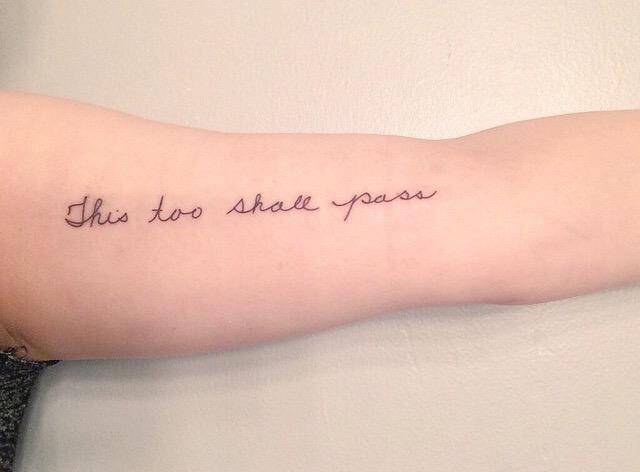 This too shall pass